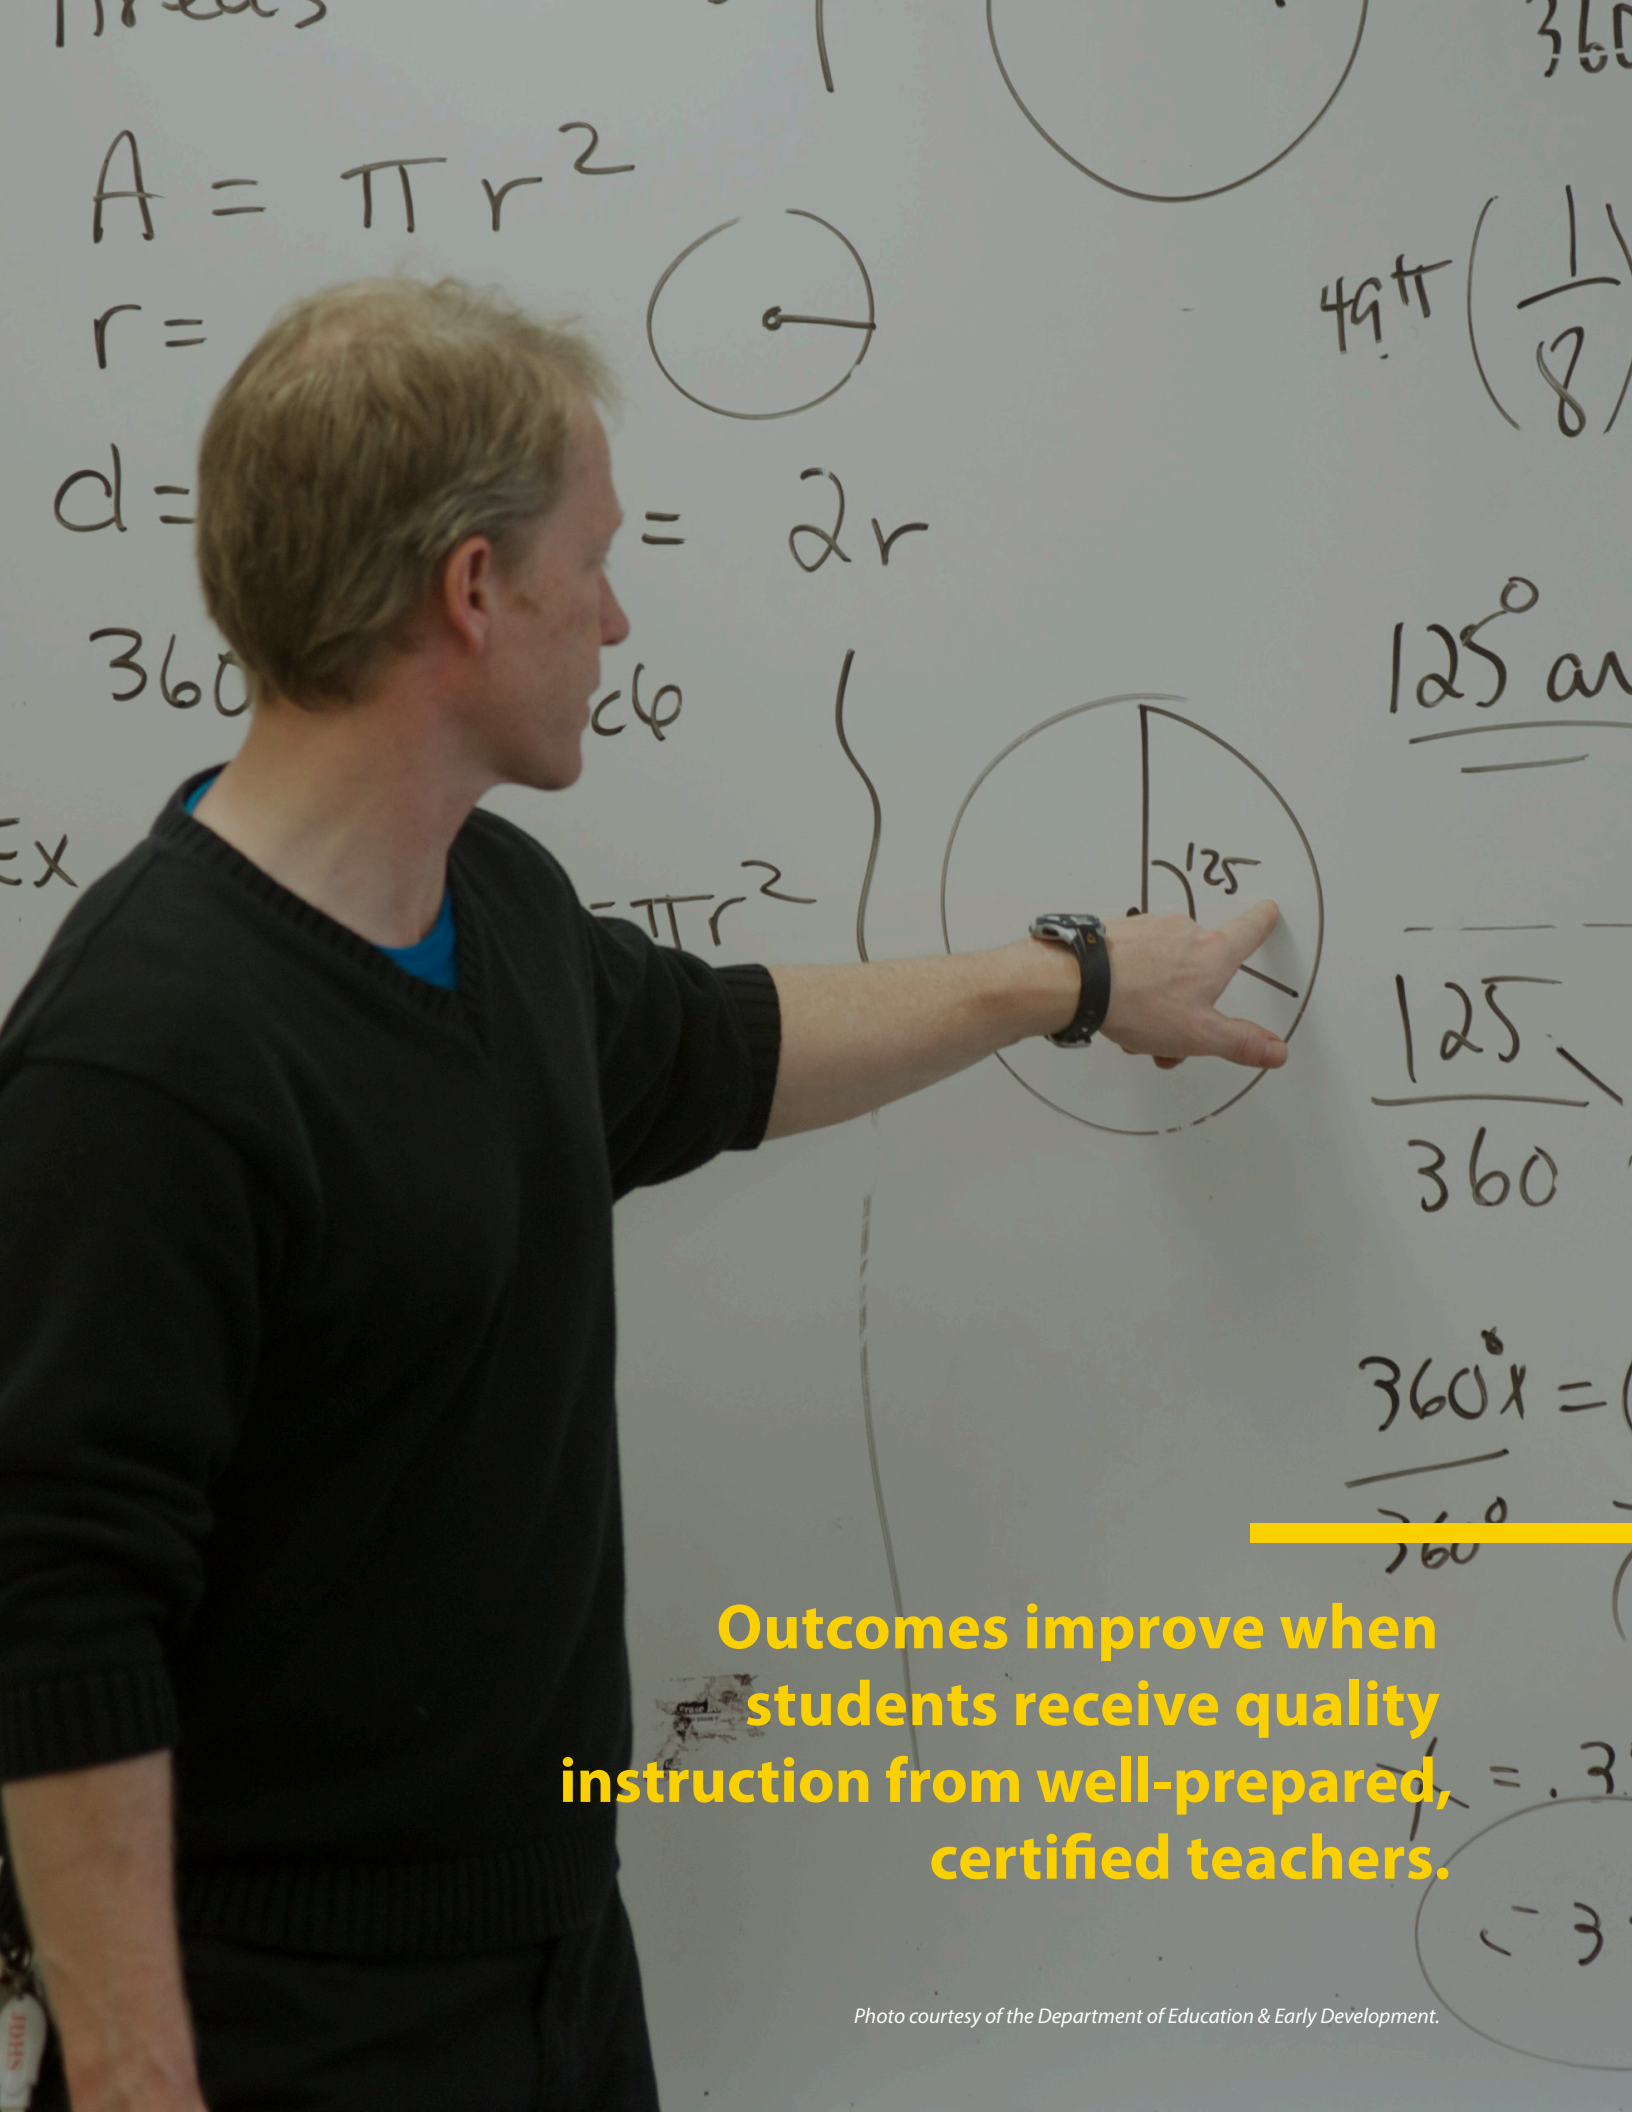 360
A = πr²
49π (1/8)
r =
d = = 2r
125° 
360
125
Ex
πr²
125
360
360°x = (
360°
Outcomes improve when
students receive quality
instruction from well-prepared,
certified teachers.
x = .3
= 3
Photo courtesy of the Department of Education & Early Development.
JDHS